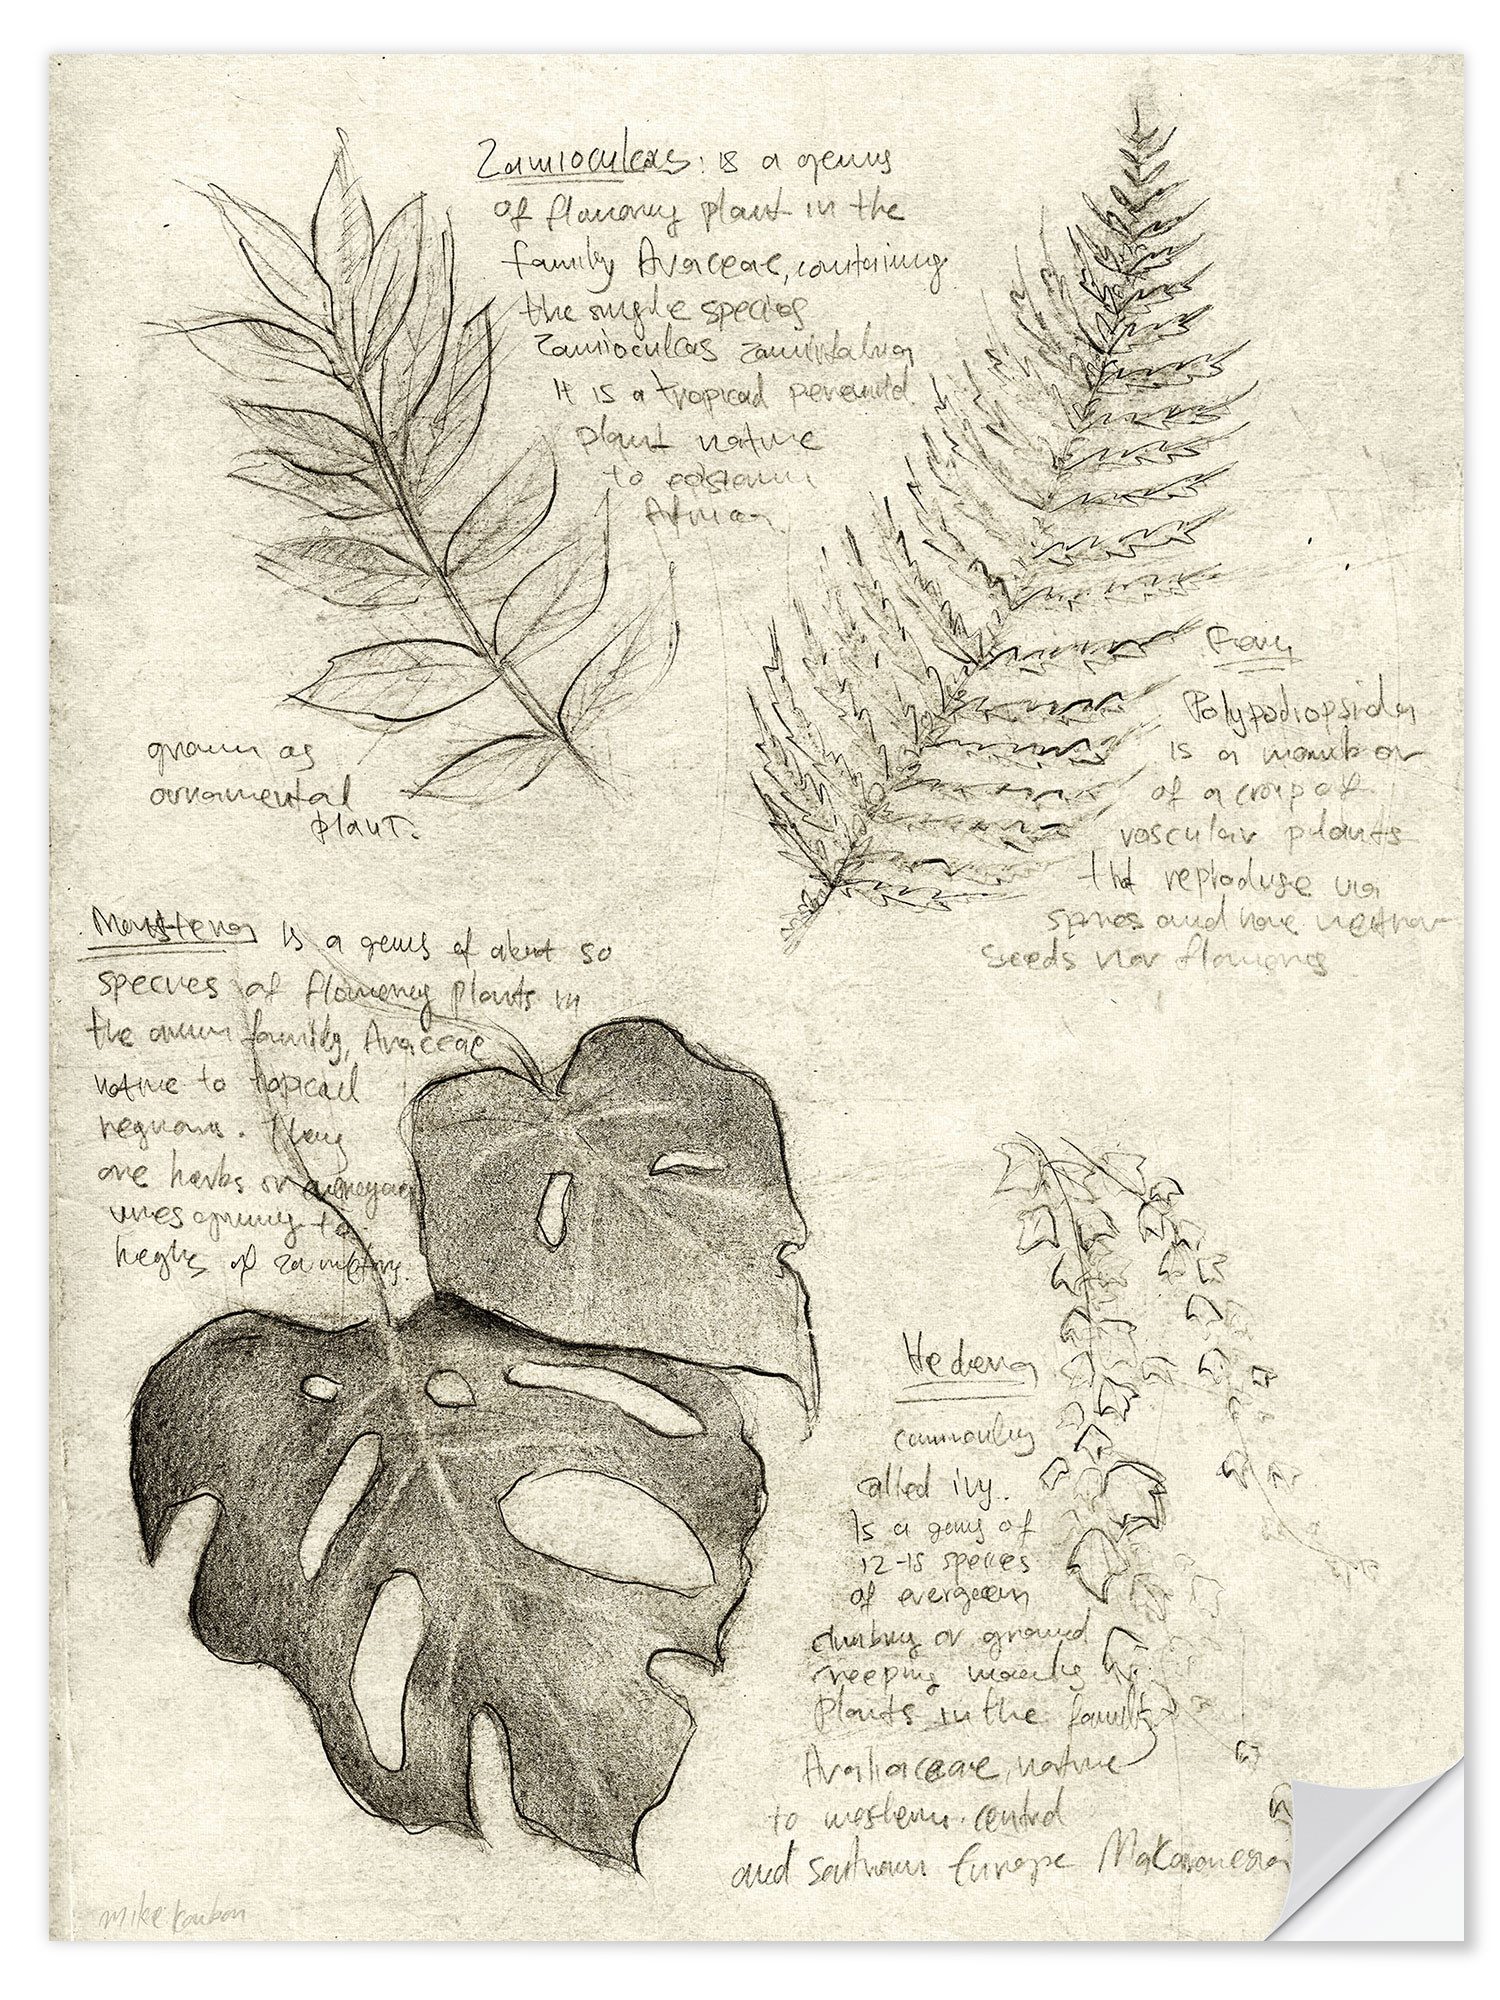 Zamioculcas: is a genus
of flowering plant in the
family Araceae, containing
the single species
Zamioculcas
It is a tropical
plant native
to eastern
African
grown as
ornamental
plant.
Fern
Polypodiopsida
is a member
of a group of
vascular plants
that reproduce via
spores and have neither
seeds nor flowering
Monstera is a genus of about 50
species of flowering plants in
the arum family, Araceae
native to tropical
regions. They
are herbs or
vines growing to
of
Hedera
commonly
called ivy.
Is a genus of
12-15 species
of evergreen
climbing or ground
creeping
plants in the family
Araliaceae, native
to western. central
and southern Europe Makaronesia
mike koubou